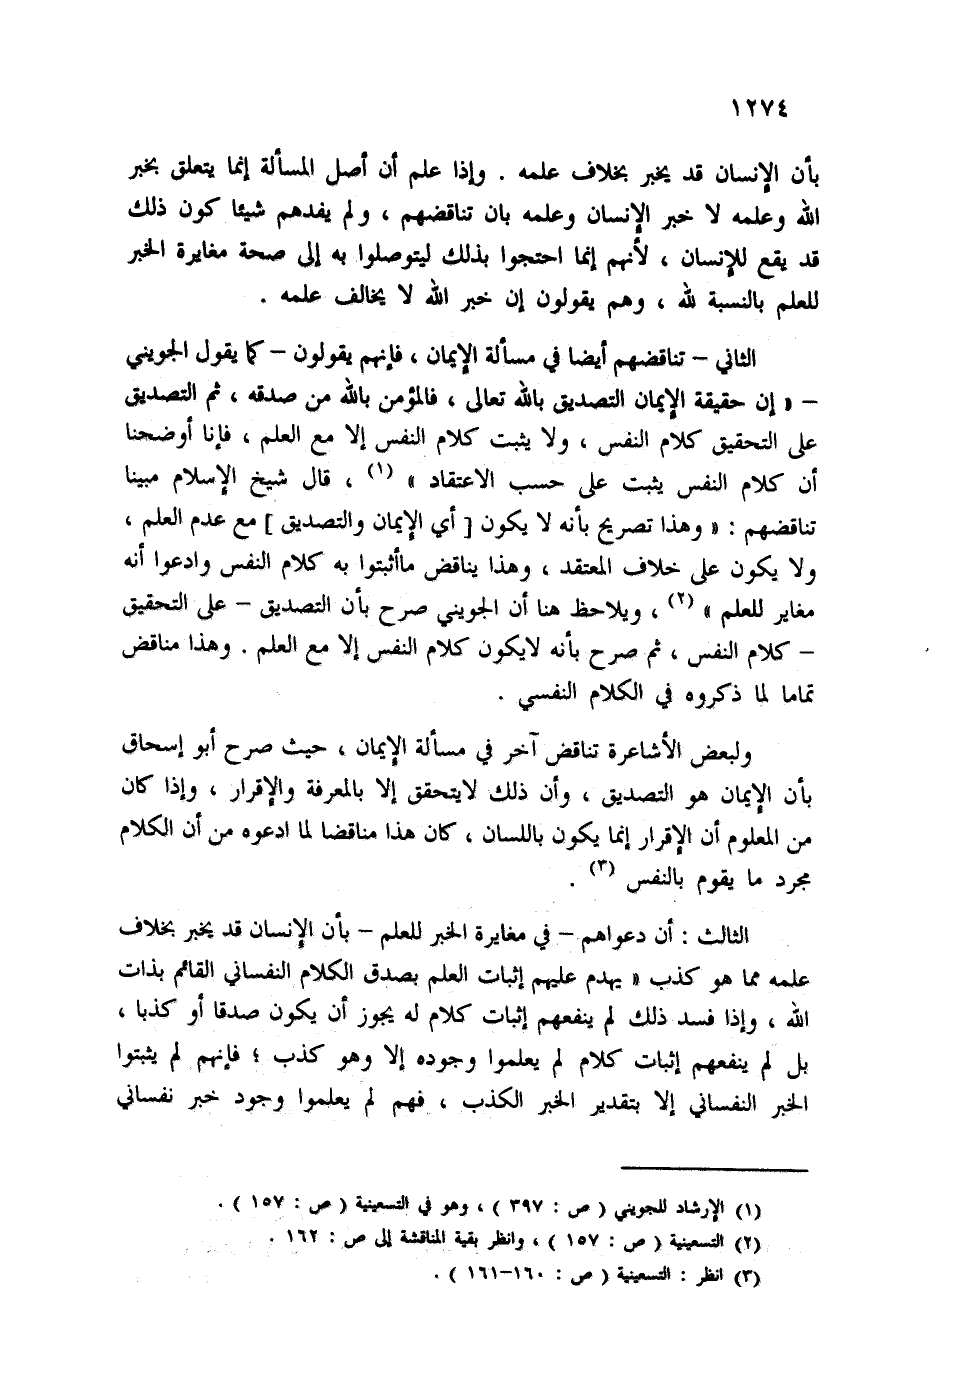 ١٢٧٤
بأن الإنسان قد يخبر بخلاف علمه . وإذا علم أن أصل المسألة إنما يتعلق بخبر
الله وعلمه لا خبر الإنسان وعلمه بان تناقضهم ، ولم يفدهم شيئا كون ذلك
قد يقع للإنسان ، لأنهم إنما احتجوا بذلك ليتوصلوا به إلى صحة مغايرة الخبر
للعلم بالنسبة لله ، وهم يقولون إن خبر الله لا يخالف علمه .
الثاني – تناقضهم أيضا في مسألة الإيمان ، فإنهم يقولون – كما يقول الجويني
– « إن حقيقة الإيمان التصديق بالله تعالى ، فالمؤمن بالله من صدقه ، ثم التصديق
على التحقيق كلام النفس ، ولا يثبت كلام النفس إلا مع العلم ، فإنا أوضحنا
أن كلام النفس يثبت على حسب الاعتقاد » (١) ، قال شيخ الإسلام مبينا
تناقضهم : « وهذا تصريح بأنه لا يكون [ أي الإيمان والتصديق ] مع عدم العلم ،
ولا يكون على خلاف المعتقد ، وهذا يناقض ماأثبتوا به كلام النفس وادعوا أنه
مغاير للعلم » (٢) ، ويلاحظ هنا أن الجويني صرح بأن التصديق – على التحقيق
– كلام النفس ، ثم صرح بأنه لايكون كلام النفس إلا مع العلم . وهذا مناقض
تماما لما ذكروه في الكلام النفسي .
ولبعض الأشاعرة تناقض آخر في مسألة الإيمان ، حيث صرح أبو إسحاق
بأن الإيمان هو التصديق ، وأن ذلك لايتحقق إلا بالمعرفة والإقرار ، وإذا كان
من المعلوم أن الإقرار إنما يكون باللسان ، كان هذا مناقضا لما ادعوه من أن الكلام
مجرد ما يقوم بالنفس (٣) .
الثالث : أن دعواهم – في مغايرة الخبر للعلم – بأن الإنسان قد يخبر بخلاف
علمه مما هو كذب « يهدم عليهم إثبات العلم بصدق الكلام النفساني القائم بذات
الله ، وإذا فسد ذلك لم ينفعهم إثبات كلام له يجوز أن يكون صدقا أو كذبا ،
بل لم ينفعهم إثبات كلام لم يعلموا وجوده إلا وهو كذب ؛ فإنهم لم يثبتوا
الخبر النفساني إلا بتقدير الخبر الكذب ، فهم لم يعلموا وجود خبر نفساني
(١) الإرشاد للجويني ( ص : ٣٩٧ ) ، وهو في التسعينية ( ص : ١٥٧ ) .
(٢) التسعينية ( ص : ١٥٧ ) ، وانظر بقية المناقشة إلى ص : ١٦٢ .
(٣) انظر : التسعينية ( ص : ١٦٠–١٦١ ) .